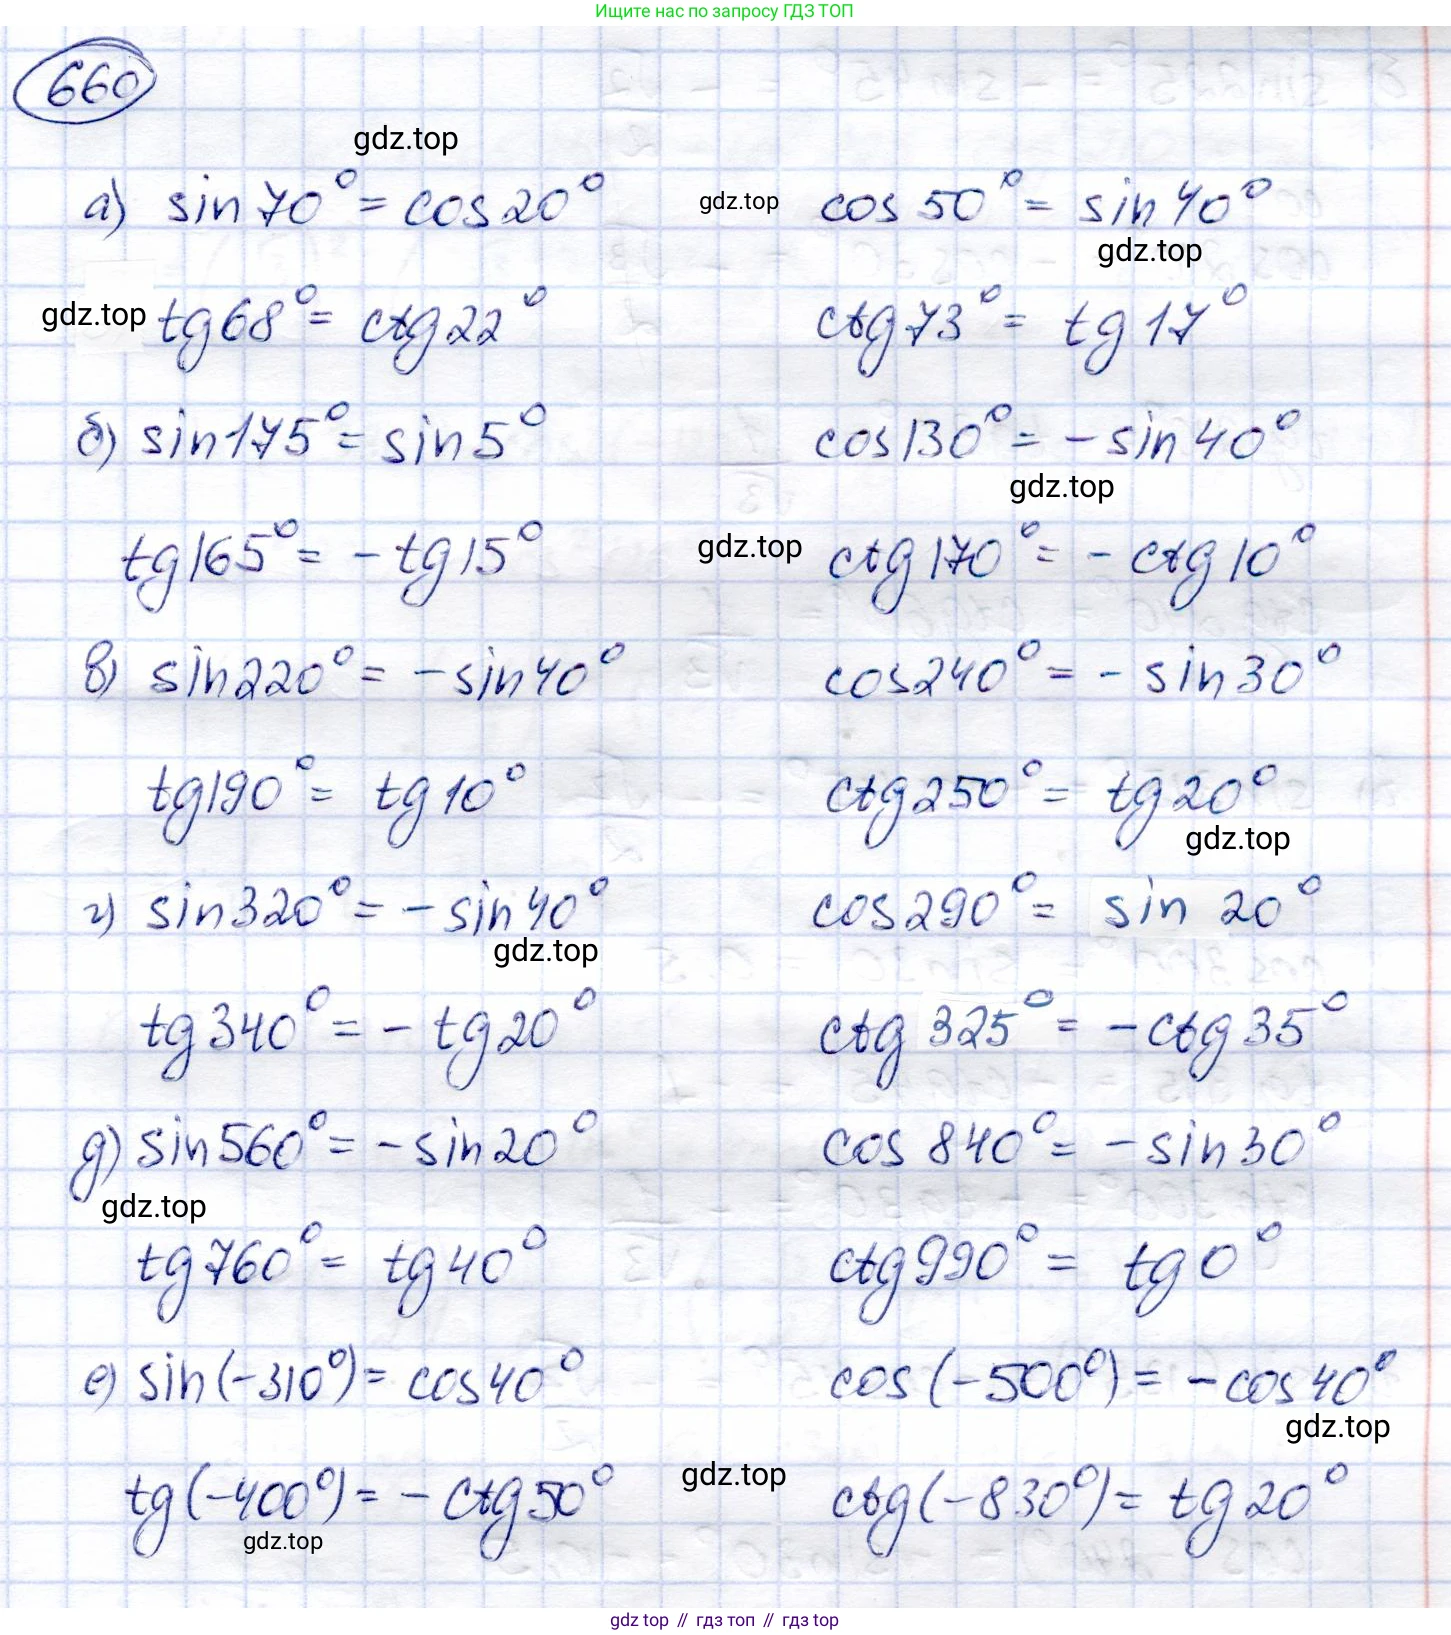 Ищите нас по запросу ГДЗ ТОП
660
gdz.top
а) sin 70° = cos 20° gdz.top cos 50° = sin 40°
gdz.top
gdz.top tg 68° = ctg 22° ctg 73° = tg 17°
б) sin 175° = sin 5° cos 130° = - sin 40°
gdz.top
tg 165° = - tg 15° gdz.top ctg 170° = - ctg 10°
в) sin 220° = - sin 40° cos 240° = - sin 30°
tg 190° = tg 10° ctg 250° = tg 20°
gdz.top
г) sin 320° = - sin 40° cos 290° = sin 20°
gdz.top
tg 340° = - tg 20° ctg 325° = - ctg 35°
д) sin 560° = - sin 20° cos 840° = - sin 30°
gdz.top
tg 760° = tg 40° ctg 990° = tg 0°
е) sin (-310°) = cos 40° cos (-500°) = - cos 40°
gdz.top
tg (-400°) = - ctg 50° gdz.top ctg (-830°) = tg 20°
gdz.top
gdz top // гдз топ // гдз top